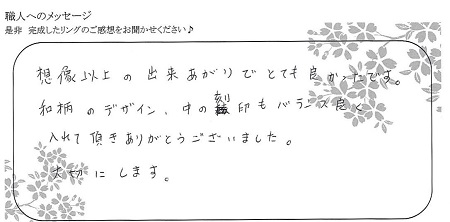 職人へのメッセージ
是非 完成したリングのご感想をお聞かせください♪
想像以上の出来あがりでとても良かったです。
和柄のデザイン、中の刻印もバランス良く
入れて頂きありがとうございました。
大切にします。